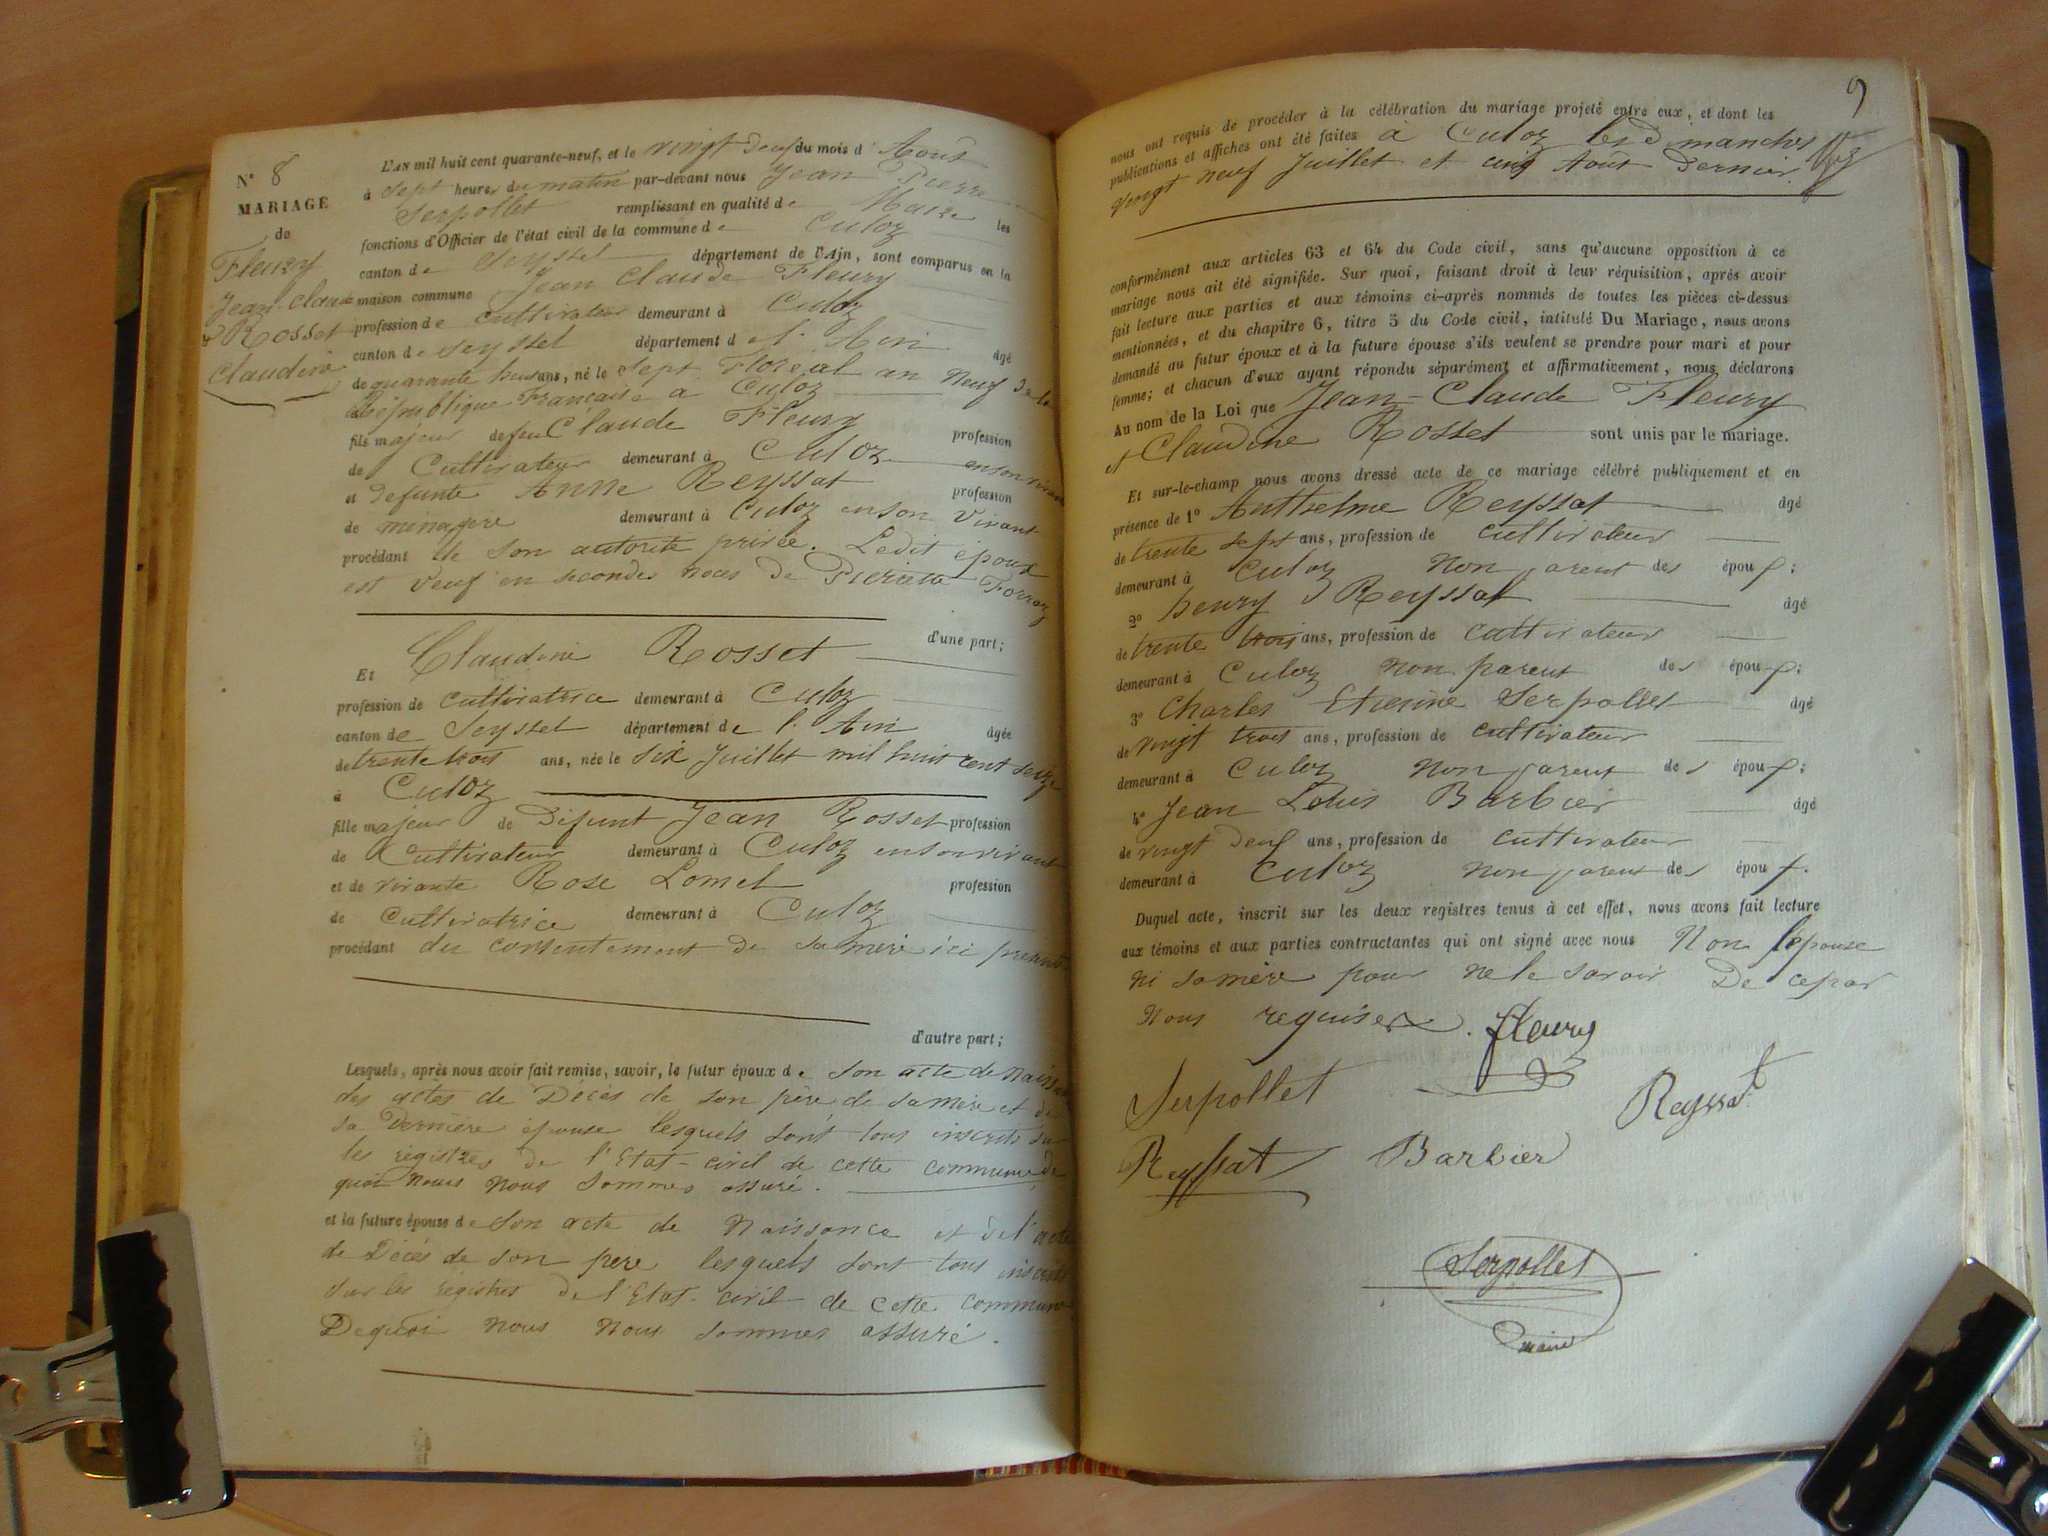 N° 8
MARIAGE
de
Fleury
Jean-Claude
& Rosset
Claudine
L'AN mil huit cent quarante-neuf, et le vingt deux du mois d'Aout
à sept heures du matin par-devant nous Jean Pierre
Serpollet remplissant en qualité de Maire les
fonctions d'Officier de l'état civil de la commune de Culoz
canton de Seyssel département de l'Ain, sont comparus en la
maison commune Jean Claude Fleury
profession de cultivateur demeurant à Culoz
canton de Seyssel département de l'Ain âgé
de quarante huit ans, né le sept Floréal an Neuf de la
République Française a Culoz
fils majeur de feu Claude Fleury profession
de Cultivateur demeurant à Culoz en son vivant
et defunte Anne Reyssat profession
de ménagère demeurant à Culoz en son vivant
procédant de son autorité privée. Ledit époux
est veuf en secondes noces de Pierrette
d'une part;
Et Claudine Rosset
profession de cultivatrice demeurant à Culoz
canton de Seyssel département de l'Ain âgée
de trente trois ans, née le six Juillet mil huit cent seize
à Culoz
fille majeur de Défunt Jean Rosset profession
de Cultivateur demeurant à Culoz en son vivant
et de vivante Rose Lomel profession
de cultivatrice demeurant à Culoz
procédant du consentement de sa mère ici présente
d'autre part;
Lesquels, après nous avoir fait remise, savoir, le futur époux de son acte de Naissance
des actes de Décès de son père de sa mère et de
sa Dernière épouse lesquels sont tous inscrits sur
les registres de l'Etat-civil de cette commune de
quoi nous nous sommes assuré.
et la future épouse de son acte de Naissance et de l'acte
de Décès de son père lesquels sont tous inscrits
sur les registres de l'Etat-civil de cette commune
De quoi nous nous sommes assuré.
9
nous ont requis de procéder à la célébration du mariage projeté entre eux, et dont les
publications et affiches ont été faites à Culoz les dimanches
vingt neuf Juillet et cinq Aout dernier.
conformément aux articles 63 et 64 du Code civil, sans qu'aucune opposition à ce
mariage nous ait été signifiée. Sur quoi, faisant droit à leur réquisition, après avoir
fait lecture aux parties et aux témoins ci-après nommés de toutes les pièces ci-dessus
mentionnées, et du chapitre 6, titre 5 du Code civil, intitulé Du Mariage, nous avons
demandé au futur époux et à la future épouse s'ils veulent se prendre pour mari et pour
femme; et chacun d'eux ayant répondu séparément et affirmativement, nous déclarons
Au nom de la Loi que Jean-Claude Fleury
et Claudine Rosset sont unis par le mariage.
Et sur-le-champ nous avons dressé acte de ce mariage célébré publiquement et en
présence de 1° Anthelme Reyssat âgé
de trente sept ans, profession de cultivateur
demeurant à Culoz non parent des époux;
2° henry Reyssat âgé
de trente trois ans, profession de cultivateur
demeurant à Culoz non parent des époux;
3° Charles Etienne Serpollet âgé
de vingt trois ans, profession de cultivateur
demeurant à Culoz non parent des époux;
4° Jean Louis Barbier âgé
de vingt deux ans, profession de cultivateur
demeurant à Culoz non parent des époux.
Duquel acte, inscrit sur les deux registres tenus à cet effet, nous avons fait lecture
aux témoins et aux parties contractantes qui ont signé avec nous Non l'épouse
ni sa mère pour ne le savoir De ce par
Nous requises. fleury
Serpollet
Reyssat
Reyssat Barbier
Serpollet
maire